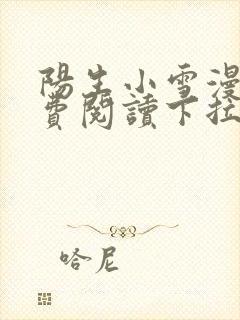 陽生小雪漫
費閱讀下拉
哈尼